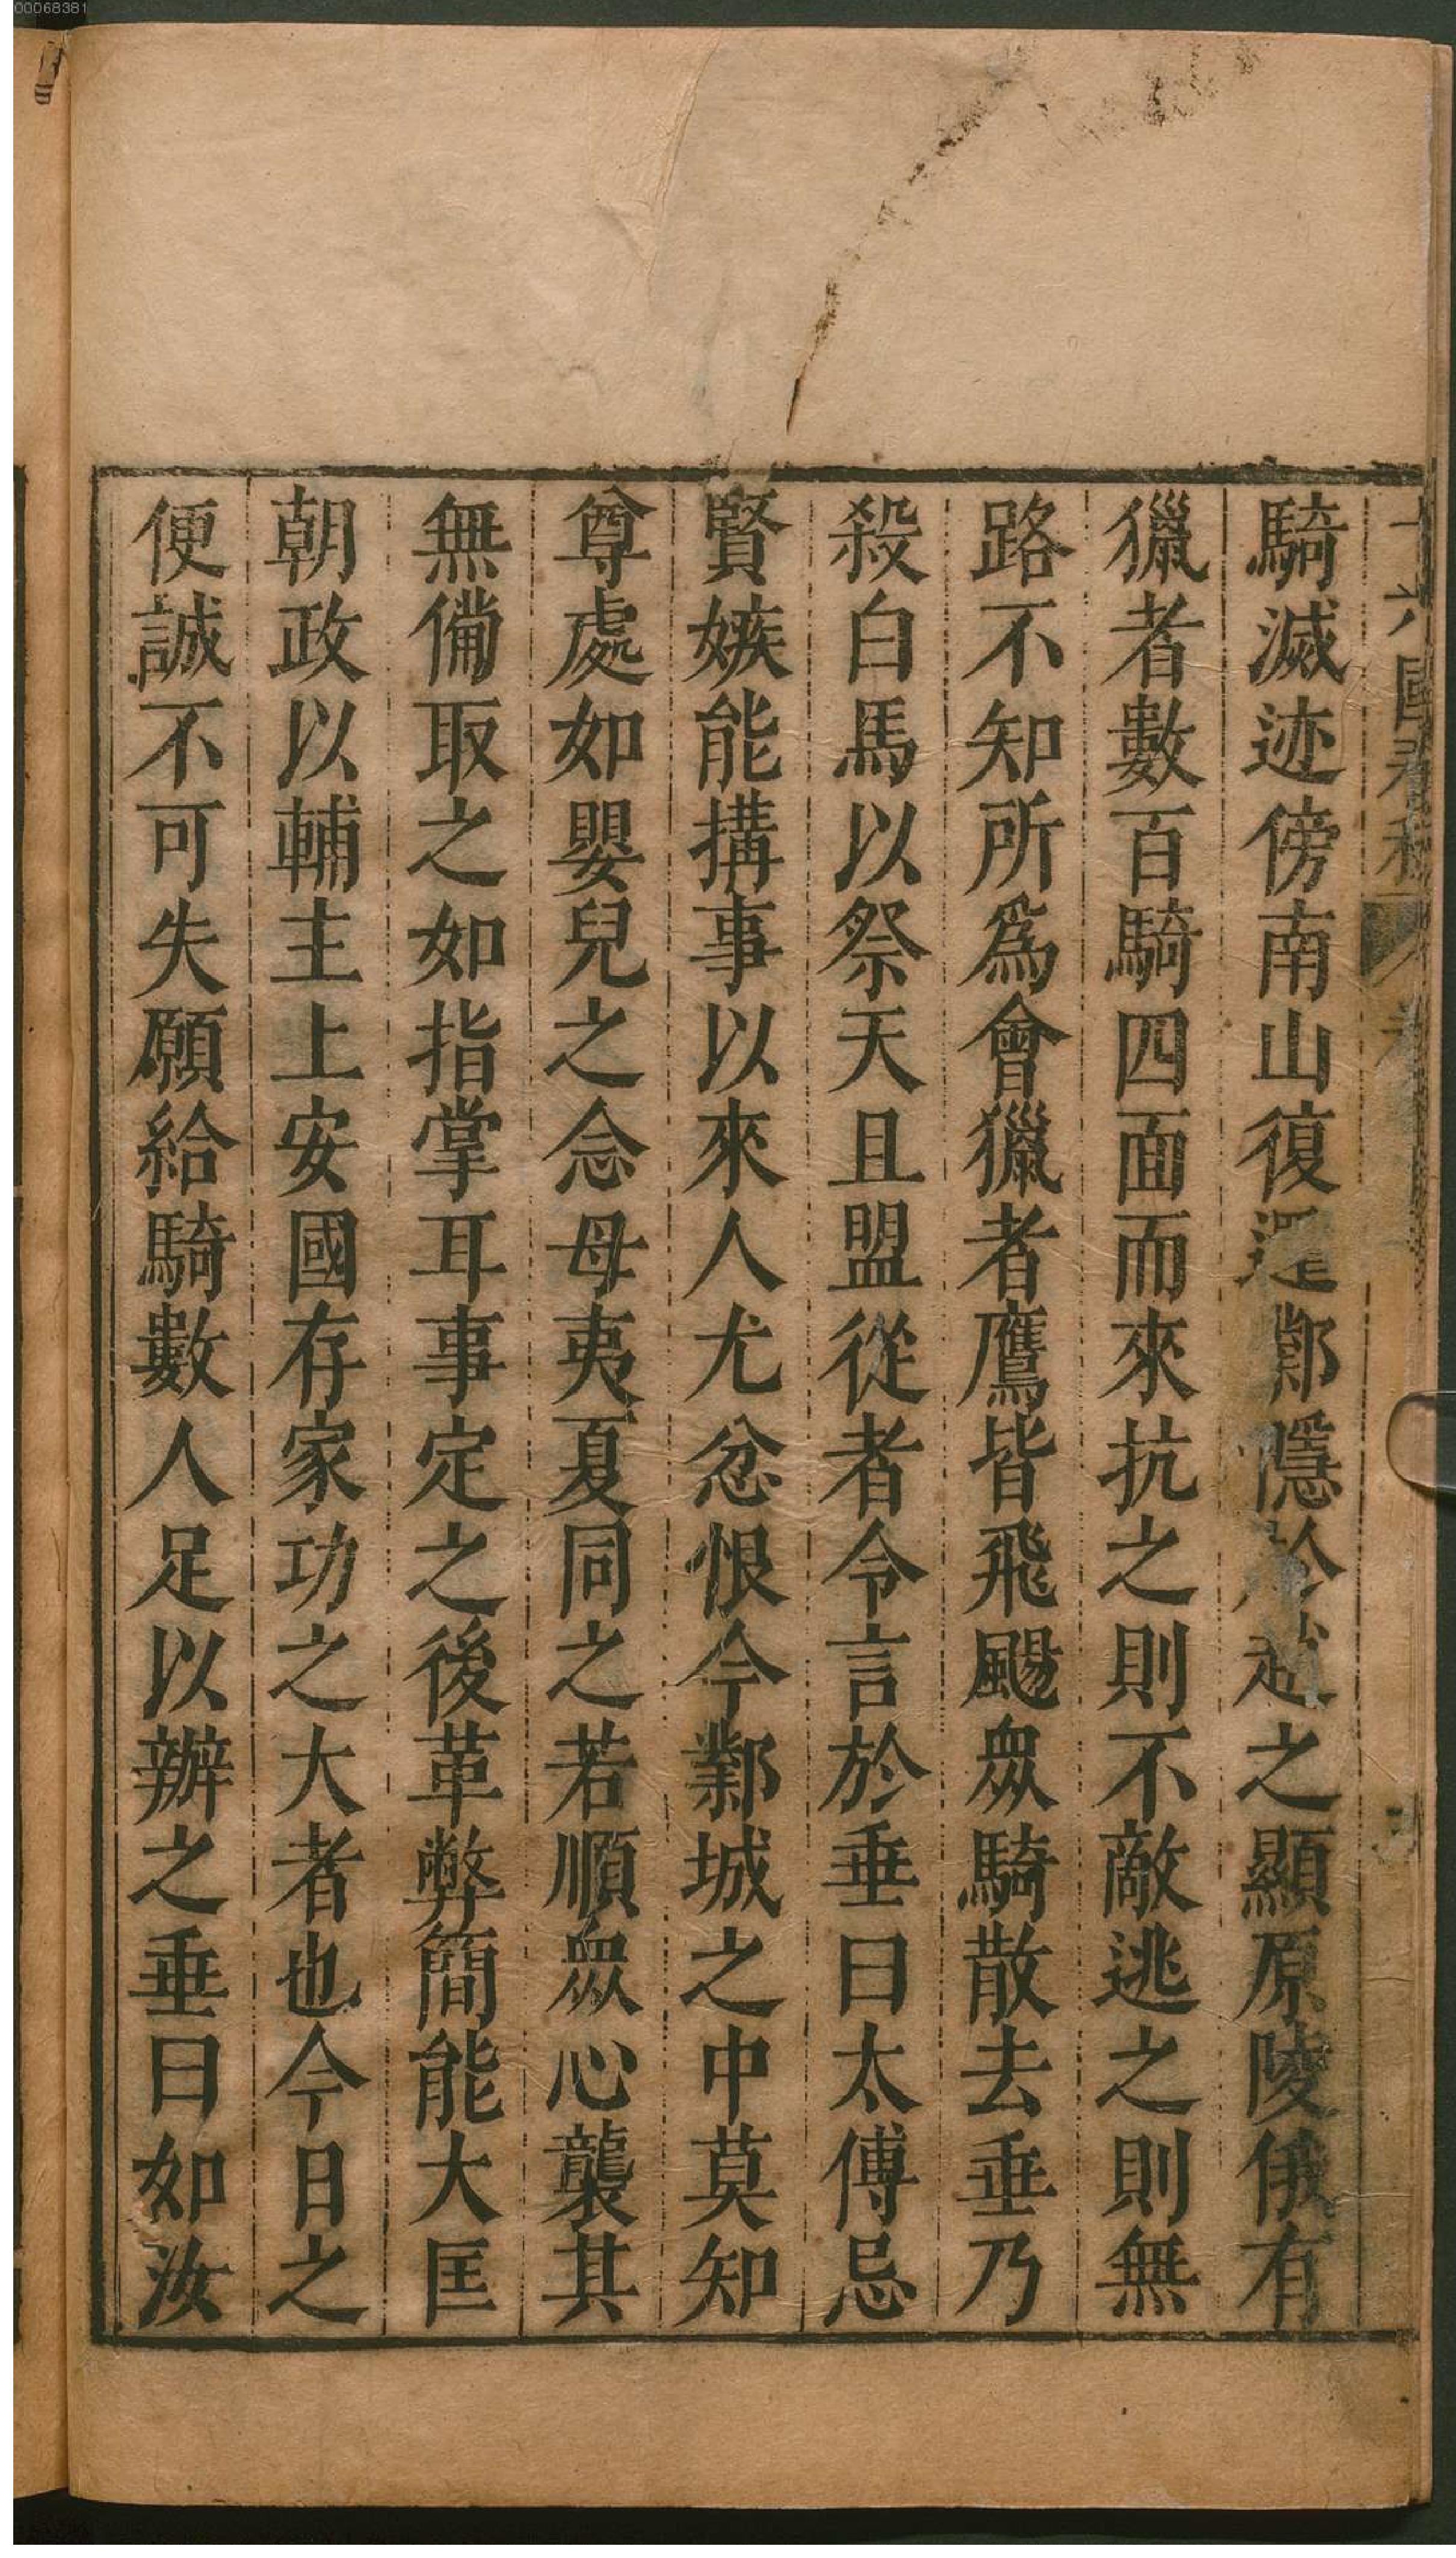 騎滅迹傍南山復還鄴隱於趙之顯原陵俄有
獵者數百騎四面而來抗之則不敵逃之則無
路不知所爲會獵者鷹皆飛颺衆騎散去垂乃
殺白馬以祭天且盟從者令言於垂曰太傅忌
賢嫉能搆事以來人尤忿恨今鄴城之中莫知
尊處如嬰兒之念母夷夏同之若順衆心襲其
無備取之如指掌耳事定之後革弊簡能大匡
朝政以輔主上安國存家功之大者也今日之
便誠不可失願給騎數人足以辦之垂曰如汝
十六國春秋
00068381